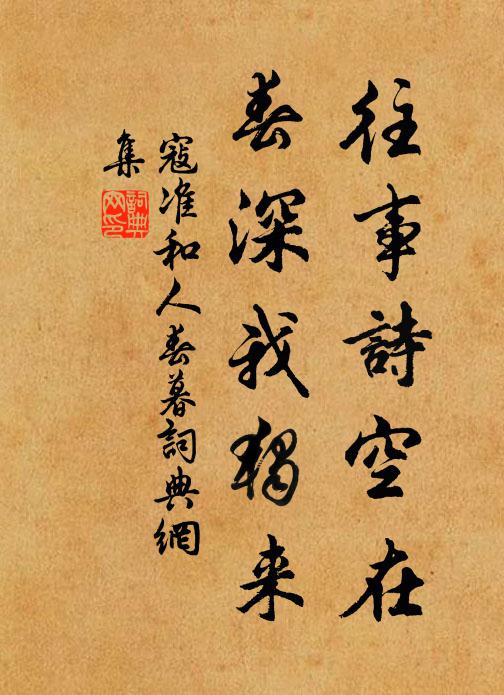 往事詩空在
春深我獨来
寇准和人春暮詞典網
集
詞典
网印